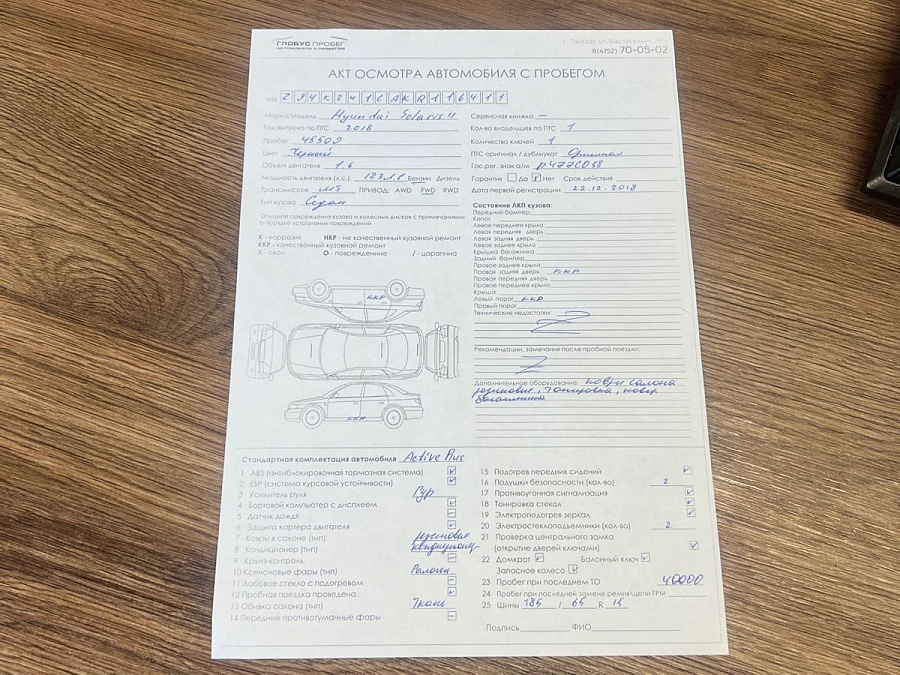 ГЛОБУС ПРОБЕГ
АВТОМОБИЛИ С ПРОБЕГОМ
г. Тамбов ул. Бастионная,
8(4752) 70-05-02
АКТ ОСМОТРА АВТОМОБИЛЯ С ПРОБЕГОМ
VIN Z94K241CAKR116411
Марка/Модель Hyundai Solaris II
Год выпуска по ПТС 2018
Пробег 45509
Цвет Черный
Объем двигателя 1.6
Мощность двигателя (л.с.) 123 л.с Бензин Дизель
Трансмиссия МТ ПРИВОД: AWD FWD RWD
Тип кузова Седан
Опишите повреждения кузова и колесных дисков с примечаниями
о порядке устранения повреждений
К - коррозия НКР - не качественный кузовной ремонт
ККР - качественный кузовной ремонт
Х - скол О - повреждение / - царапина
ККР
ККР
Сервисная книжка —
Кол-во владельцев по ПТС 1
Количество ключей 1
ПТС оригинал / дубликат Оригинал
Гос.рег. знак а/м Р477СО58
Гарантия Да Нет Срок действия
Дата первой регистрации 22.12.2018
Состояние ЛКП кузова:
Передний бампер
Капот
Левое переднее крыло
Левая передняя дверь
Левая задняя дверь
Левое заднее крыло
Крышка багажника
Задний бампер
Правое заднее крыло
Правая задняя дверь ККР
Правая передняя дверь
Правое переднее крыло
Крыша
Левый порог ККР
Правый порог
Технические недостатки:
Рекомендации, замечания после пробной поездки:
Дополнительное оборудование: ковры салона
резиновые, тонировка, ковер
багажника
Стандартная комплектация автомобиля Active Plus
1 ABS (антиблокировочная тормозная система)
2 ESP (система курсовой устойчивости)
3 Усилитель руля Гур
4 Бортовой компьютер с дисплеем
5 Датчик дождя
6 Защита картера двигателя
7 Ковры в салоне (тип) резиновые
8 Кондиционер (тип) кондиционер
9 Круиз-контроль
10 Ксеноновые фары (тип) Галоген
11 Лобовое стекло с подогревом
12 Пробная поездка проведена
13 Обивка салона (тип) Ткань
14 Передние противотуманные фары
15 Подогрев передних сидений
16 Подушки безопасности (кол-во) 2
17 Противоугонная сигнализация
18 Тонировка стекол
19 Электроподогрев зеркал
20 Электростеклоподъемники (кол-во) 2
21 Проверка центрального замка
(открытие дверей ключами)
22 Домкрат Балонный ключ
Запасное колесо
23 Пробег при последнем ТО 40000
24 Пробег при последней замене ремня/цепи ГРМ
25 Шины 185 / 65 R 15
Подпись ФИО